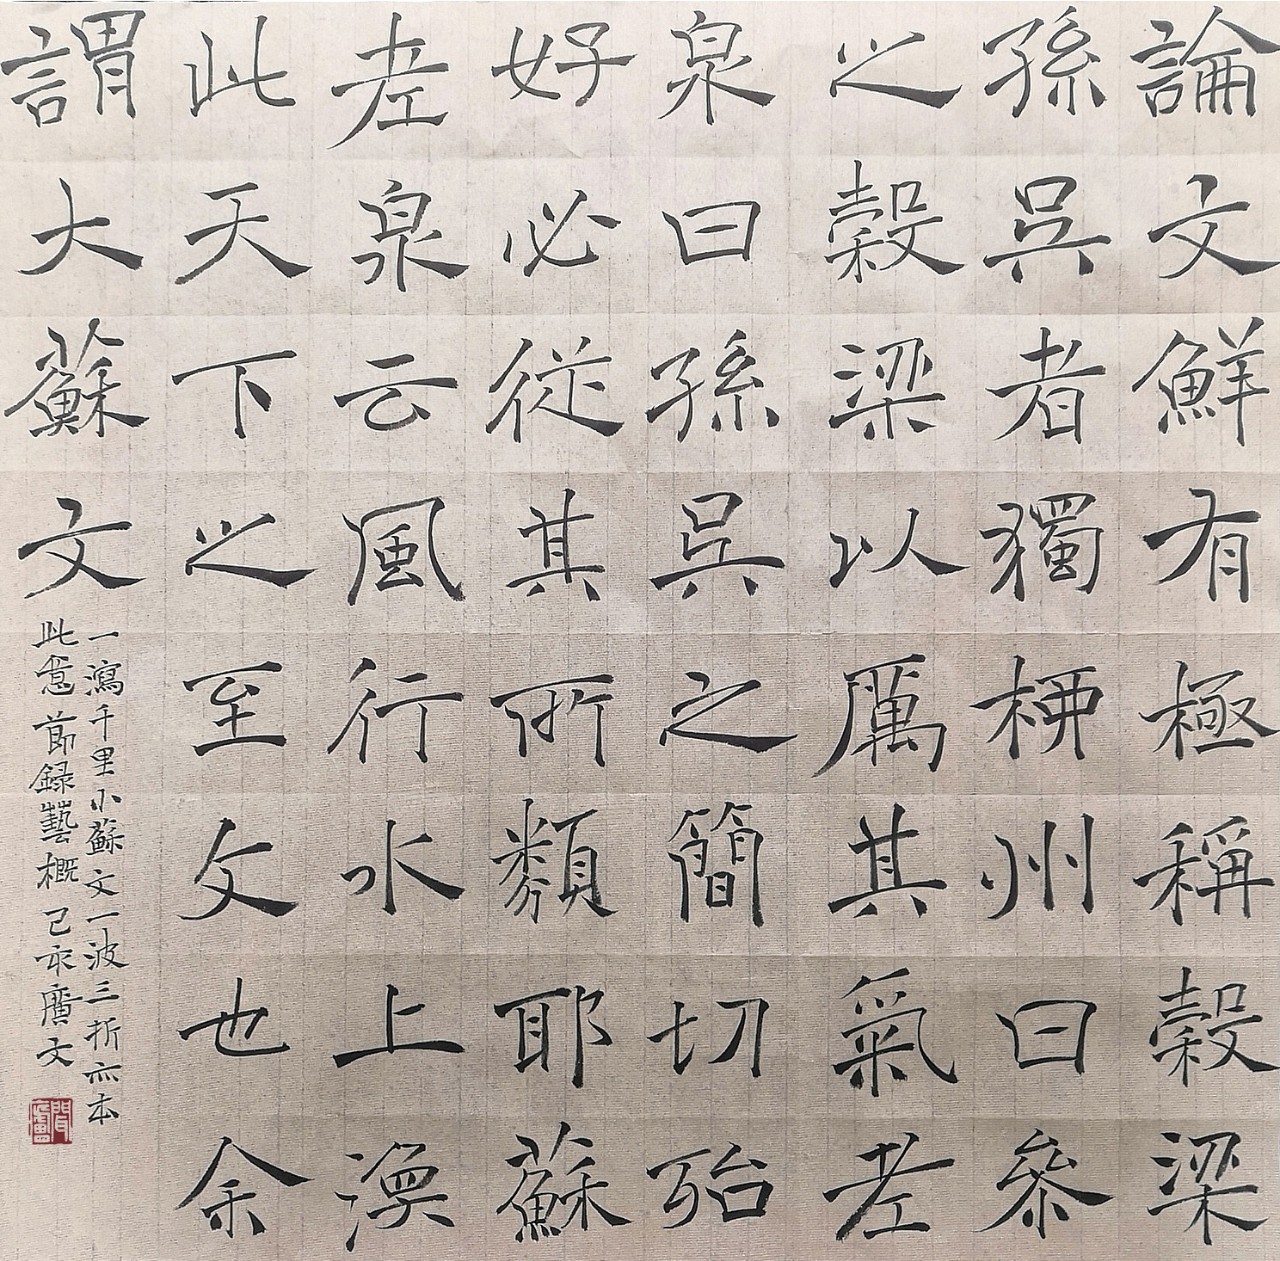 論文鮮有極稱穀梁
孫吳者獨柳州曰參
之穀梁以厲其氣老
泉曰孫吳之簡切殆
好必從其所類耶蘇
老泉云風行水上渙
此天下之至文也余
謂大蘇文
一瀉千里小蘇文一波三折亦本
此意 節録藝概 己亥廣文